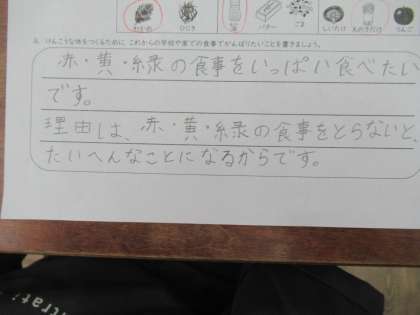 わかめ ひじき のり バター ごま しいたけ えのきだけ りんご
4. けんこうな体をつくるために、これからの学校や家での食事でがんばりたいことを書きましょう。
赤・黄・緑の食事をいっぱい食べたい
です。
理由は、赤・黄・緑の食事をとらないと、
たいへんなことになるからです。
trati